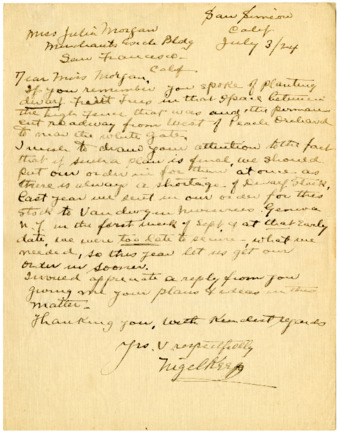 San Simeon
Miss Julia Morgan Calif
Merchants Exch Bldg July 3/24
San Francisco
Calif
Dear Miss Morgan,
If you remember you spoke of planting
dwarf fruit trees in that space between
the high fence that was and the perman-
ent roadway from West of Pearl Orchard
to near the white gate.
I wish to draw your attention to the fact
that if such a plan is final, we should
put our order in for them at once. as
there is always a shortage of Dwarf Stock,
Last year we sent in our order for this
stock to Van Nurseries Geneva
N.Y. in the first week of Sept & at that early
date, we were too late to secure what we
needed, so this year let us get our
order in sooner.
I would appreciate a reply from you
giving me your plans & ideas in this
matter.
Thanking you, with kindest regards
Yrs. V respectfully
Nigel Keep